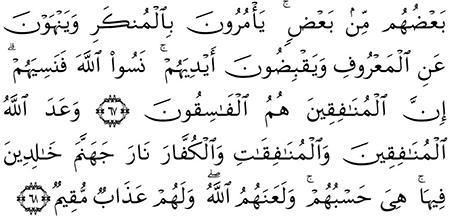 بَعْضُهُم مِّنۢ بَعْضٍۢ ۚ يَأْمُرُونَ بِٱلْمُنكَرِ وَيَنْهَوْنَ
عَنِ ٱلْمَعْرُوفِ وَيَقْبِضُونَ أَيْدِيَهُمْ ۚ نَسُوا۟ ٱللَّهَ فَنَسِيَهُمْ ۗ
إِنَّ ٱلْمُنَٰفِقِينَ هُمُ ٱلْفَٰسِقُونَ ﴿٦٧﴾ وَعَدَ ٱللَّهُ
ٱلْمُنَٰفِقِينَ وَٱلْمُنَٰفِقَٰتِ وَٱلْكُفَّارَ نَارَ جَهَنَّمَ خَٰلِدِينَ
فِيهَا ۚ هِىَ حَسْبُهُمْ ۚ وَلَعَنَهُمُ ٱللَّهُ ۖ وَلَهُمْ عَذَابٌۭ مُّقِيمٌۭ ﴿٦٨﴾